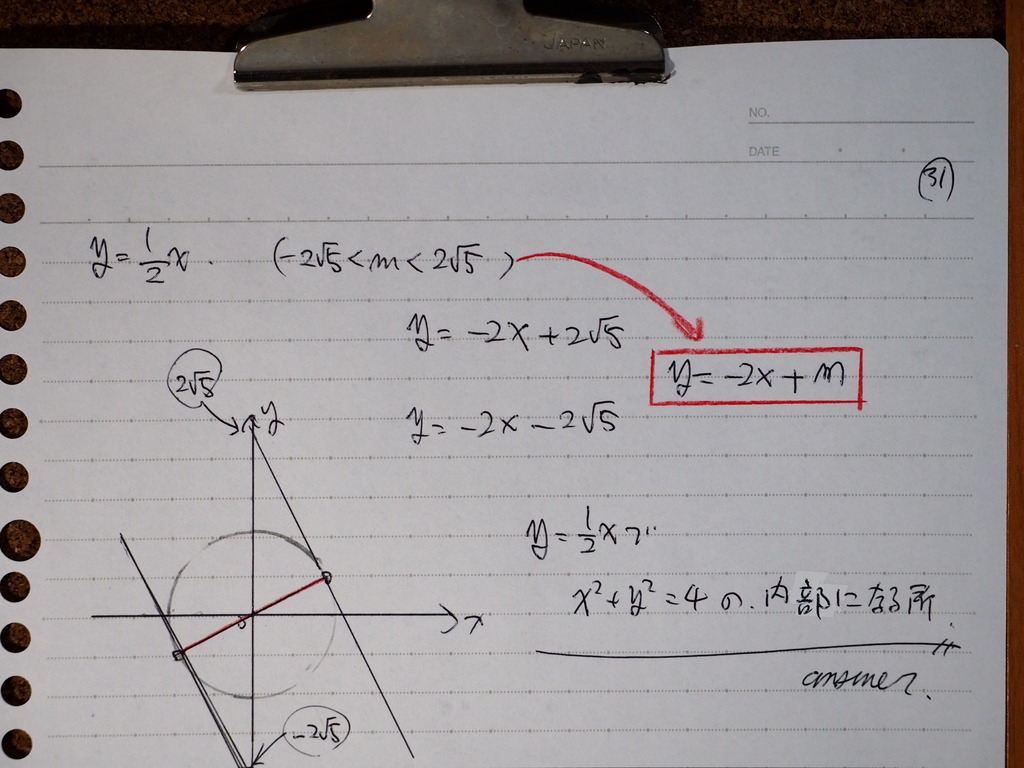 JAPAN
NO.
DATE
31
y = 1/2 x. (-2√5 < m < 2√5)
y = -2x + 2√5
y = -2x + m
2√5
y
y = -2x - 2√5
y = 1/2 x で
x² + y² = 4 の. 内部になる所.
x
0
answer.
-2√5